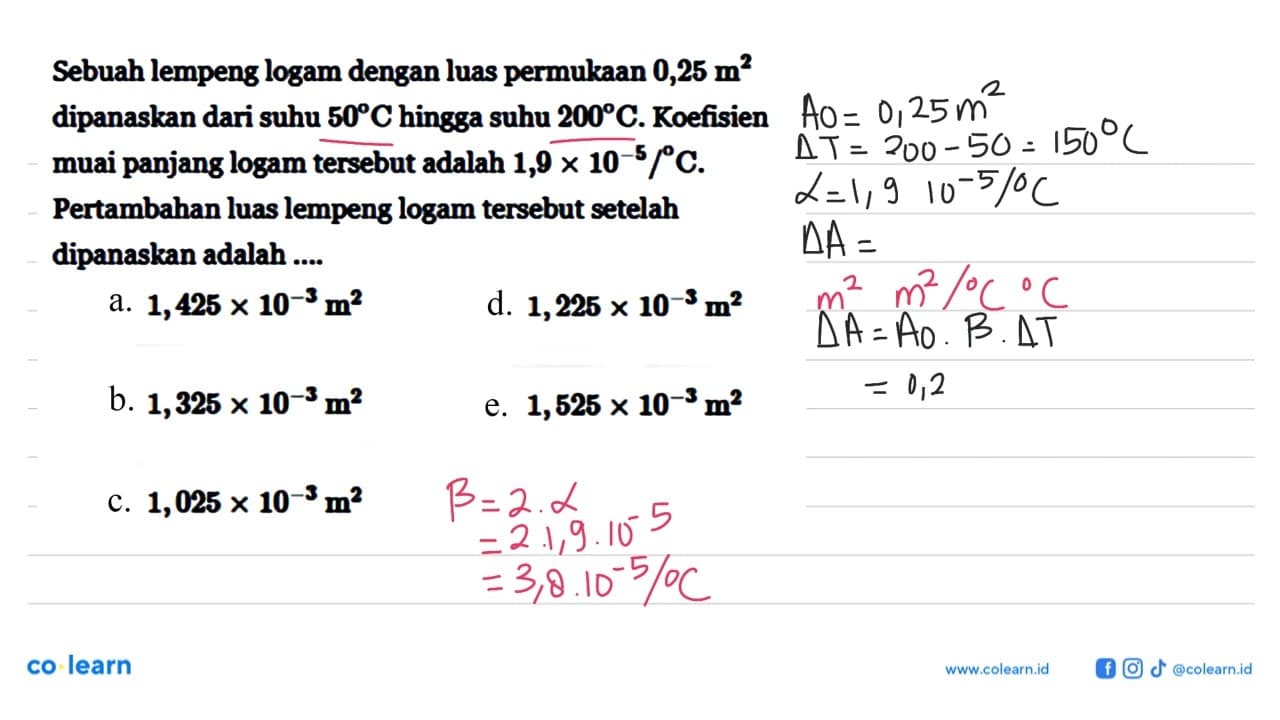 Sebuah lempeng logam dengan luas permukaan 0,25 m²
dipanaskan dari suhu 50°C hingga suhu 200°C. Koefisien
muai panjang logam tersebut adalah 1,9 × 10⁻⁵/°C.
Pertambahan luas lempeng logam tersebut setelah
dipanaskan adalah ....
a. 1,425 × 10⁻³ m²
d. 1,225 × 10⁻³ m²
b. 1,325 × 10⁻³ m²
e. 1,525 × 10⁻³ m²
c. 1,025 × 10⁻³ m²
A0 = 0,25 m²
ΔT = 200 - 50 = 150°C
α = 1,9 10⁻⁵/°C
ΔA =
m² m²/°C °C
ΔA = A0 . β . ΔT
= 0,2
β = 2 . α
= 2 . 1,9 . 10⁻⁵
= 3,8 . 10⁻⁵/°C
co learn
www.colearn.id
@colearn.id